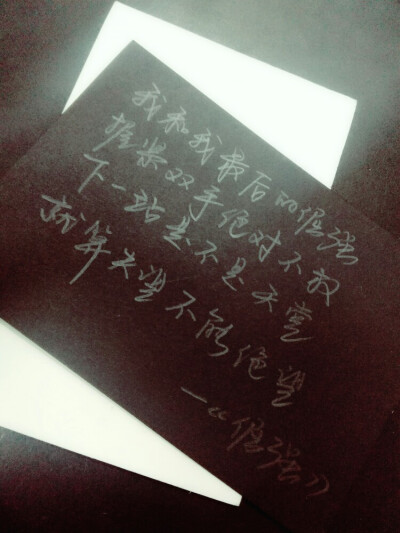 我和我最后的倔强
握紧双手绝对不放
下一站是不是天堂
就算失望不能绝望
—《倔强》